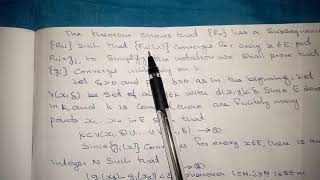 The theorem shows that {fn} has a Subsequence
{fni} Such that {fni(x)} Converges for every x∈E put
fni = gi, to Simplify the notation we shall prove that
{gi} Converges uniformly on k
Let ε>0 and δ>0 as in the beginning, Let
V(x,δ) be Set of all y∈k with d(x,y)<δ. Since E is dense
in k, and k is Compact there are finitely many
points x1, ... xm in E Such that
k⊂V(x1,δ) ∪ ... V(xm,δ) → ①
Since {gi(x)} Converges for every x∈E, there is an
integer N Such that → ②
|gi(xs) - gj(xs)| < whenever i≥N, j≥N, 1≤s≤m